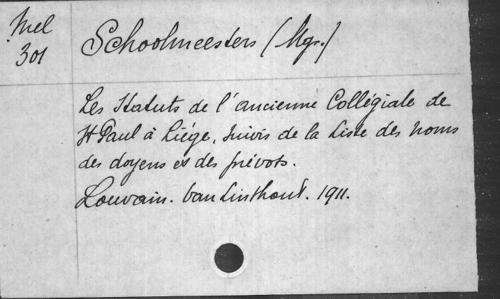 Mel
301
Schoolmeesters (Mgr.)
Les Statuts de l'ancienne Collégiale de
St Paul à Liége, suivis de la Liste des noms
des doyens et des prévots.
Louvain. Van Linthout. 1911.